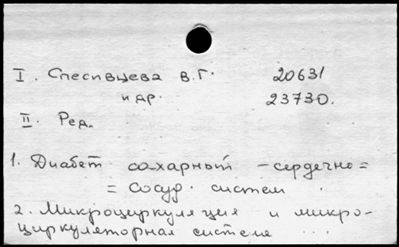 I. Спесивцева В.Г. 20631
и др. 23730.
II. Ред.
1. Диабет сахарный - сердечно=
= сосуд. систем
2. Микроциркуляция и микро-
циркуляторная система ...